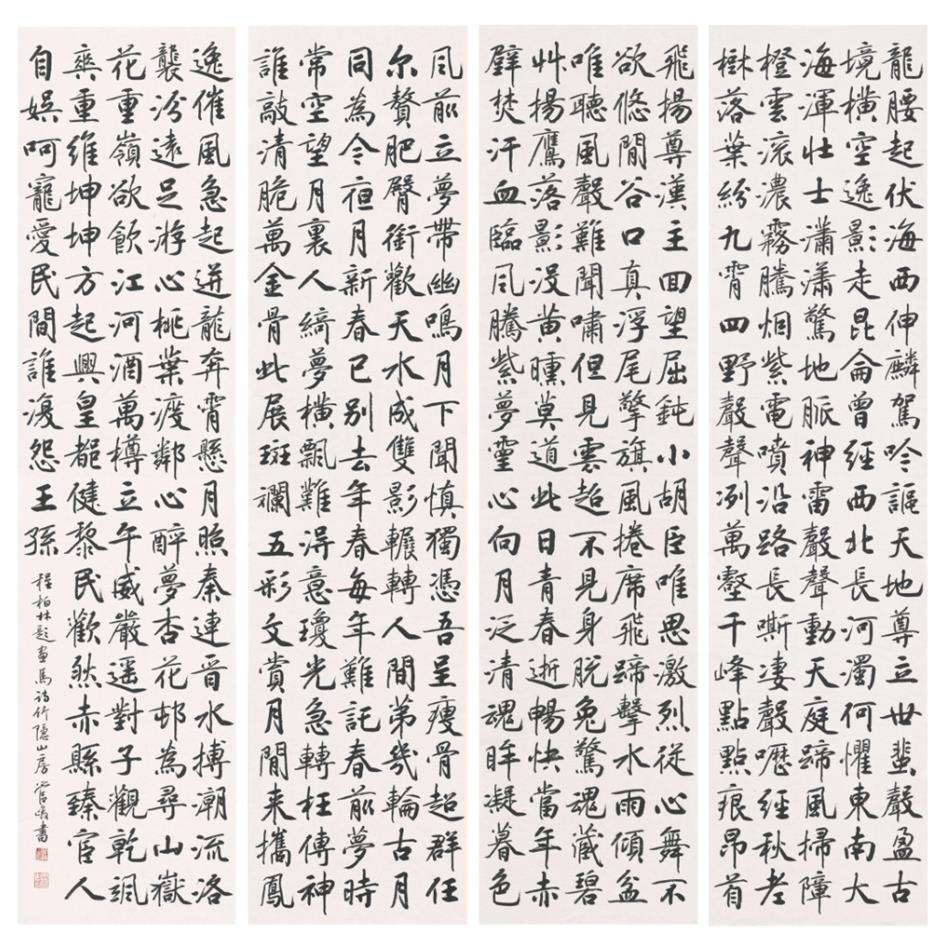 龍腰起伏海西伸麟駕吟謳天地尊立世蜚聲盈古
境橫空逸影走昆侖曾經西北長河濁何懼東南大
海渾壯士瀟瀟驚地脈神雷聲聲動天庭蹄風掃障
橙雲滾濃霧騰烟紫電噴沿路長嘶淒聲嚦經秋老
樹落葉紛九霄四野聲聲冽萬壑千峰點點痕昂首
飛揚尊漢主回望屈鈍小胡臣唯思激烈從心舞不
欲悠閒谷口真浮尾擎旗風捲席飛蹄擊水雨傾盆
唯聽風聲難聞嘯但見雲起不見身脫兔驚魂藏碧
艸揚鷹落影没黄曛莫道此日青春逝暢快當年赤
壁焚汗血臨風騰紫夢靈心向月泛清魂眸凝暮色
風前立夢帶幽鳴月下聞慎獨憑吾呈瘦骨超群任
尔贅肥臀銜歡天水成雙影輾轉人間第幾輪古月
同為今夜月新春已別去年春每年難託春前夢時
常空望月裏人綺夢橫飄難得意瓊光急轉枉傳神
誰敲清脆萬金骨此展斑斕五彩文賞月閒来攜鳳
逸催風急起迸龍奔霄懸月照秦連晉水搏潮流洛
襲汾遠足游心桃葉渡鄰心醉夢杏花邨為尋山嶽
花重嶺欲飲江河酒萬樽立午威嚴遥對子觀乾颯
爽重維坤坤方起興皇都健黎民歡然赤縣臻宦人
自娱呵寵愛民間誰復怨王孫
程柏林題畫馬詩竹隱山房管峻書